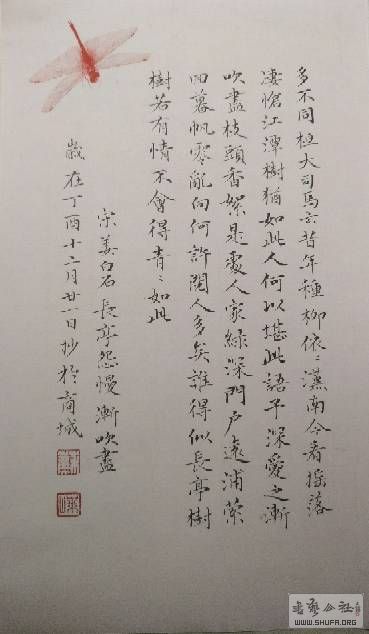 多不同桓大司馬云昔年種柳依〻漢南今看搖落
凄愴江潭樹猶如此人何以堪此語予深愛之漸
吹盡枝頭香絮是處人家綠深門戶遠浦縈
回暮帆零亂向何許閱人多矣誰得似長亭樹
樹若有情不會得青〻如此
宋姜白石長亭怨慢漸吹盡
歲在丁酉十二月廿一日抄於商城
書藝公社
WWW.SHUFA.ORG